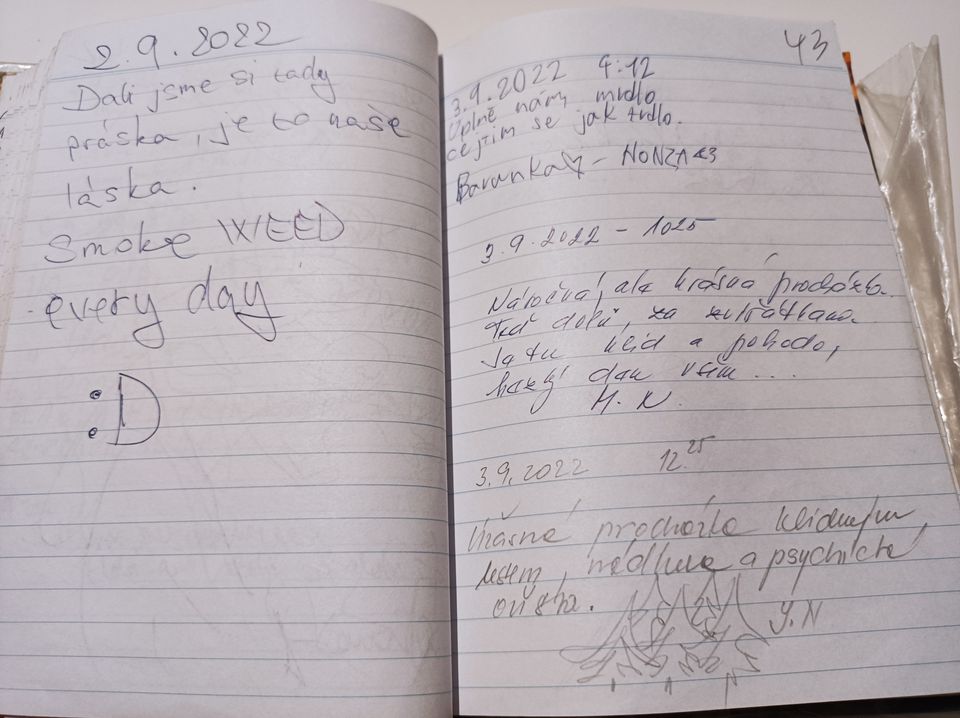 2.9.2022
Dali jsme si tady
práska, je to naše
láska.
Smoke WEED
every day
:D
43
3.9.2022 4:12
Úplně nám mrdlo
cejtim se jak trdlo.
Baranka - HONZA <3
3.9.2022 - 1025
Náročná, ale krásná procházka.
Teď dolů, za
Je tu klid a pohoda,
hezký den všem ...
H.N.
3.9.2022 12.25
Úžasná procházka klidným
lesem, nádhera a psychická
očista.
J.N